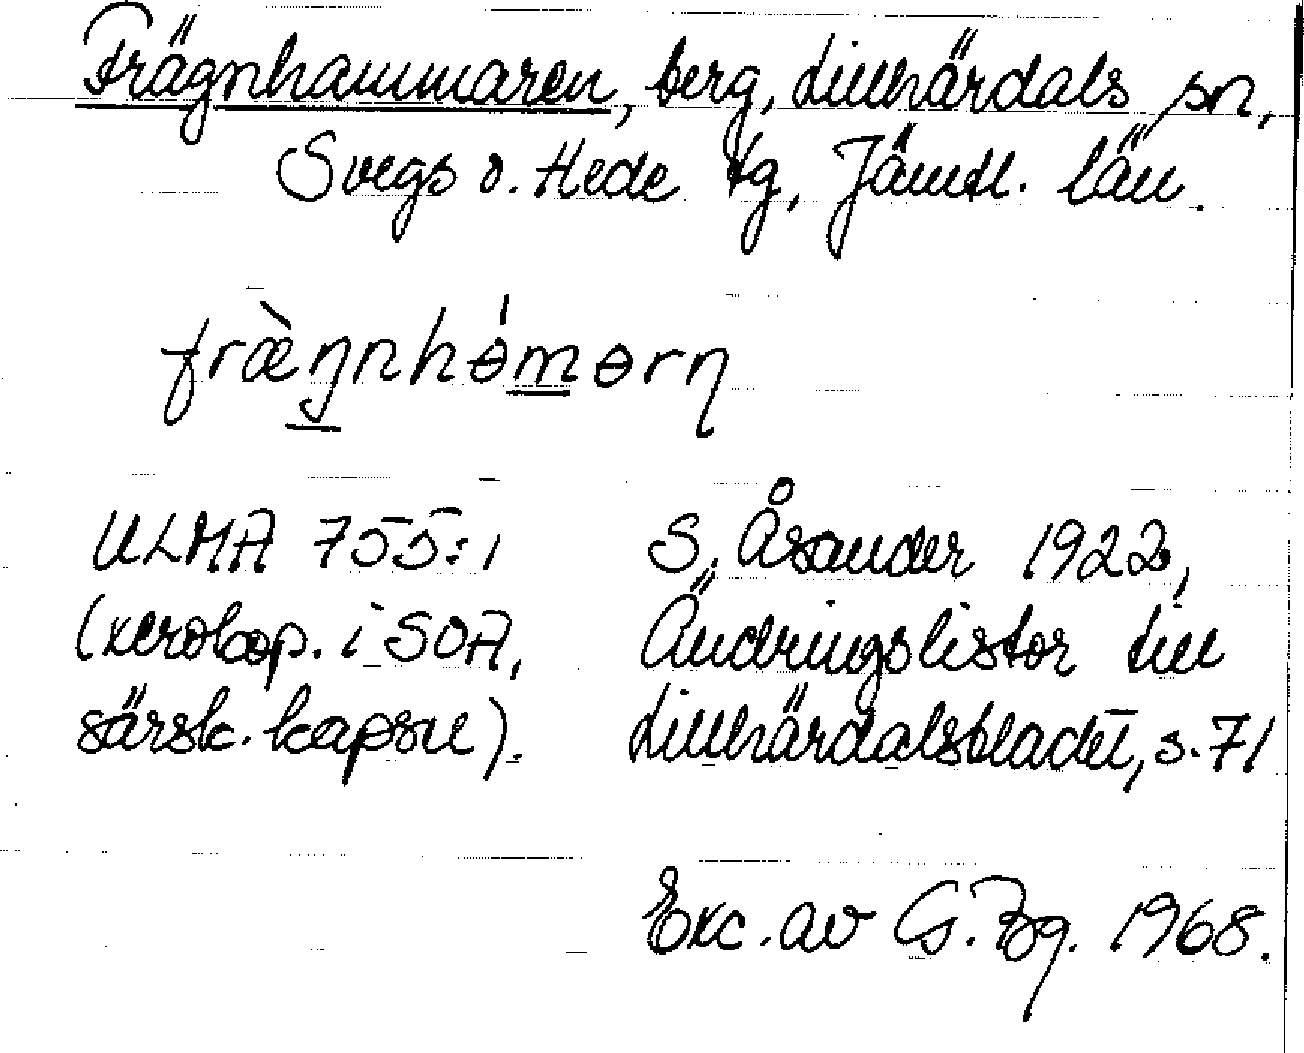 Frägnhammaren, berg, Lillhärdals sn,
Svegs o. Hede tg, Jämtl. län.
fræ̀ŋnhɵ́mɵrn
ULMA 755:1
(xerokop. i SOA,
särsk. kapsel).
S. Åsander 1922,
Ändringslistor till
Lillhärdalsbladet, s. 71
Exc. av G. Bg. 1968.